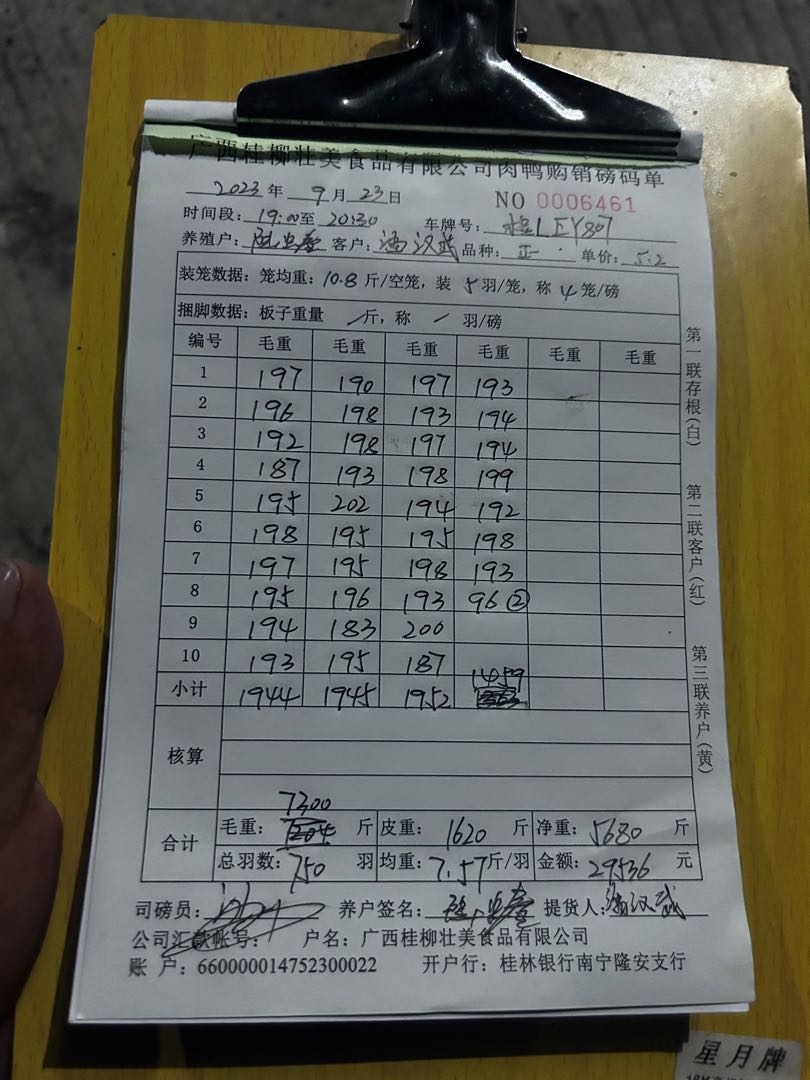 广西桂柳壮美食品有限公司肉鸭购销磅码单
2023年 9月 23日 NO 0006461
时间段: 19:00至 20:30 车牌号: LEY807
养殖户: 客户: 汉武 品种: 正 单价: 5.2
装笼数据: 笼均重: 10.8 斤/空笼, 装 5 羽/笼, 称 4 笼/磅
捆脚数据: 板子重量 / 斤, 称 / 羽/磅
编号 毛重 毛重 毛重 毛重 毛重 毛重
1 197 190 197 193
2 196 198 193 194
3 192 198 197 194
4 187 193 198 199
5 195 202 194 192
6 198 195 195 198
7 197 195 198 193
8 195 196 193 96 ②
9 194 183 200
10 193 195 187
小计 1944 1945 1952 1459
核算
合计 毛重: 7300 斤 皮重: 1620 斤 净重: 5680 斤
总羽数: 750 羽 均重: 7.57 斤/羽 金额: 29536 元
司磅员: 养户签名: 提货人: 汉武
公司汇款帐号: 户名: 广西桂柳壮美食品有限公司
账 户: 660000014752300022 开户行: 桂林银行南宁隆安支行
第一联存根(白)
第二联客户(红)
第三联养户(黄)
星月牌